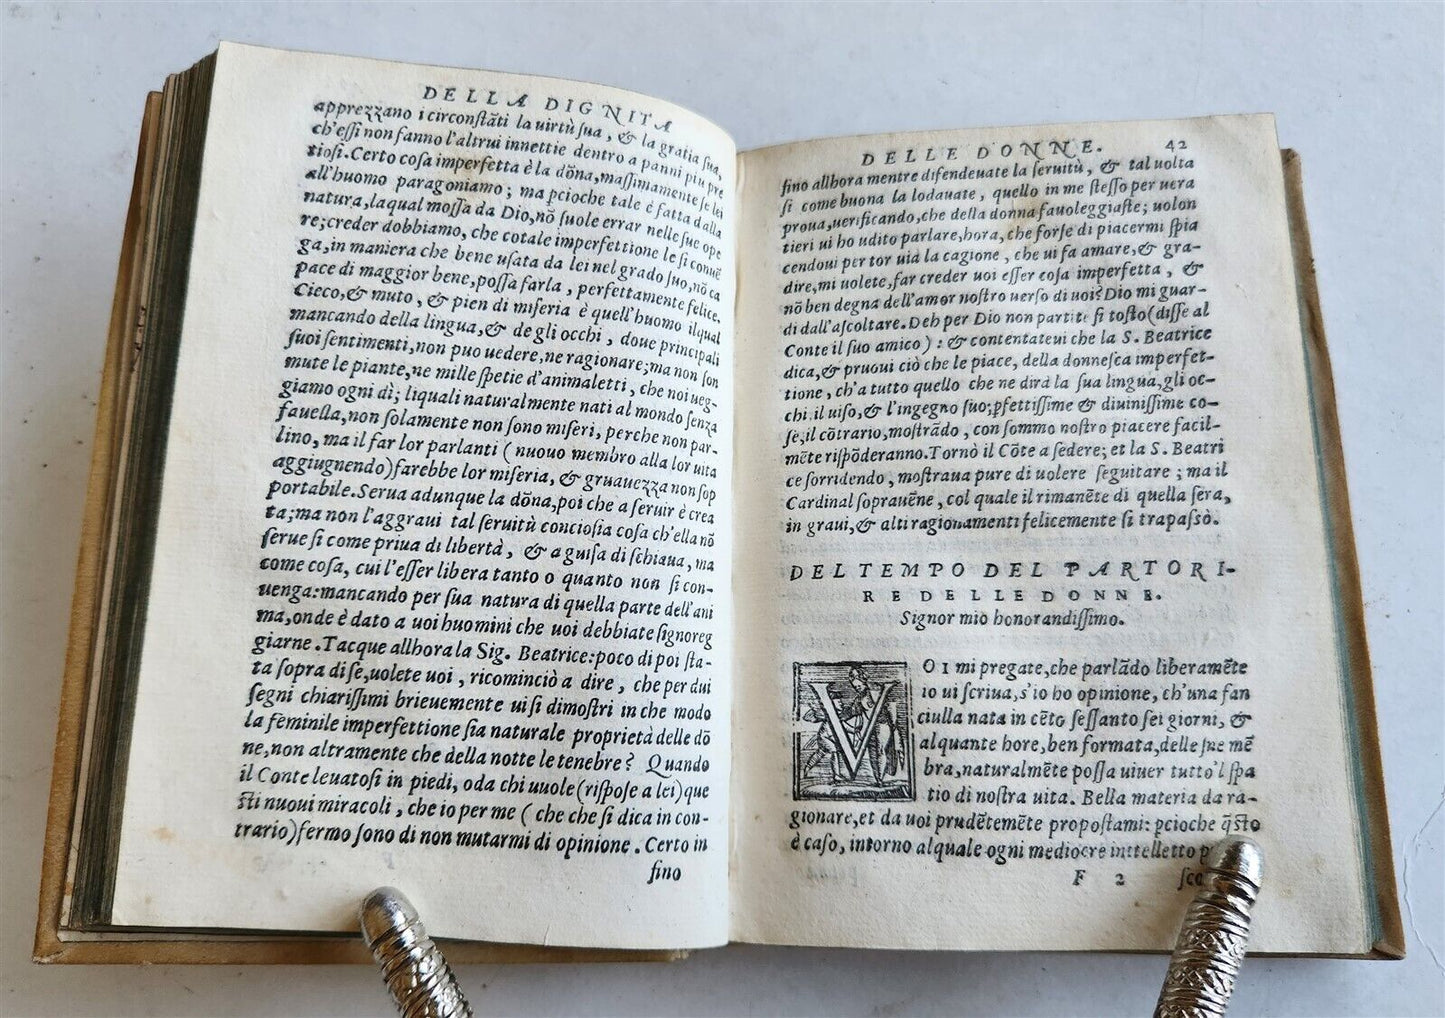 DELLA DIGNITA
apprezzano i circonstāti la uirtù sua, & la gratia sua,
ch'essi non fanno l'altrui innettie dentro a panni piu pre
tiosi. Certo cosa imperfetta è la dōna, massimamente se lei
all'huomo paragoniamo; ma pcioche tale è fatta dalla
natura, laqual mossa da Dio, nō suole errar nelle sue ope
re; creder dobbiamo, che cotale imperfettione le si conuē
ga, in maniera che bene usata da lei nel grado suo, nō ca
pace di maggior bene, possa farla, perfettamente felice.
Cieco, & muto, & pien di miseria è quell'huomo ilqual
mancando della lingua, & de gli occhi, doue principali
suoi sentimenti, non puo uedere, ne ragionare; ma non son
mute le piante, ne mille spetie d'animaletti, che noi ueg-
giamo ogni dì; liquali naturalmente nati al mondo senza
fauella, non solamente non sono miseri, perche non par-
lino, ma il far lor parlanti (nuouo membro alla lor uita
aggiugnendo) farebbe lor miseria, & gruauezza non sop
portabile. Serua adunque la dōna, poi che a seruir è crea
ta; ma non l'aggraui tal seruitù conciosia cosa ch'ella nō
serue si come priua di libertà, & a guisa di schiaua, ma
come cosa, cui l'esser libera tanto o quanto non si con-
uenga: mancando per sua natura di quella parte dell'ani
ma, onde è dato a uoi huomini che uoi debbiate signoreg
giarne. Tacque allhora la Sig. Beatrice: poco di poi sta-
ta sopra di se, uolete uoi, ricominciò a dire, che per dui
segni chiarissimi brieuemente ui si dimostri in che modo
la feminile imperfettione sia naturale proprietà delle dō
ne, non altramente che della notte le tenebre? Quando
il Conte leuatosi in piedi, oda chi uuole (rispose a lei) que
sti nuoui miracoli, che io per me (che che si dica in con-
trario) fermo sono di non mutarmi di opinione. Certo in
fino
DELLE DONNE. 42
fino allhora mentre difendeuate la seruitù, & tal uolta
si come buona la lodauate, quello in me stesso per uera
proua, uerificando, che della donna fauoleggiaste; uolon
tieri ui ho udito parlare, hora, che forse di piacermi spia
cendoui per tor uia la cagione, che ui fa amare, & gra-
dire, mi uolete, far creder uoi esser cosa imperfetta, &
nō ben degna dell'amor nostro uerso di uoi? Dio mi guar-
di dall'ascoltare. Deh per Dio non partite si tosto (disse al
Conte il suo amico): & contentateui che la S. Beatrice
dica, & pruoui ciò che le piace, della donnesca imperfet-
tione, ch'a tutto quello che ne dirà la sua lingua, gli oc-
chi il uiso, & l'ingegno suo; pfettissime & diuinissime co-
se, il cōtrario, mostrādo, con sommo nostro piacere facil-
mēte rispōderanno. Tornò il Cōte a sedere; et la S. Beatri
ce sorridendo, mostraua pure di uolere seguitare; ma il
Cardinal soprauēne, col quale il rimanēte di quella sera,
in graui, & alti ragionamenti felicemente si trapassò.
DEL TEMPO DEL PARTORI-
RE DELLE DONNE.
Signor mio honorandissimo.
VOI mi pregate, che parlādo liberamēte
io ui scriua, s'io ho opinione, ch'una fan
ciulla nata in cēto sessanto sei giorni, &
alquante hore, ben formata, delle sue mē
bra, naturalmēte possa uiuer tutto'l spa
tio di nostra uita. Bella materia da ra-
gionare, et da uoi prudētemēte propostami: pcioche q̄sto
è caso, intorno alquale ogni mediocre inttelletto
F 2